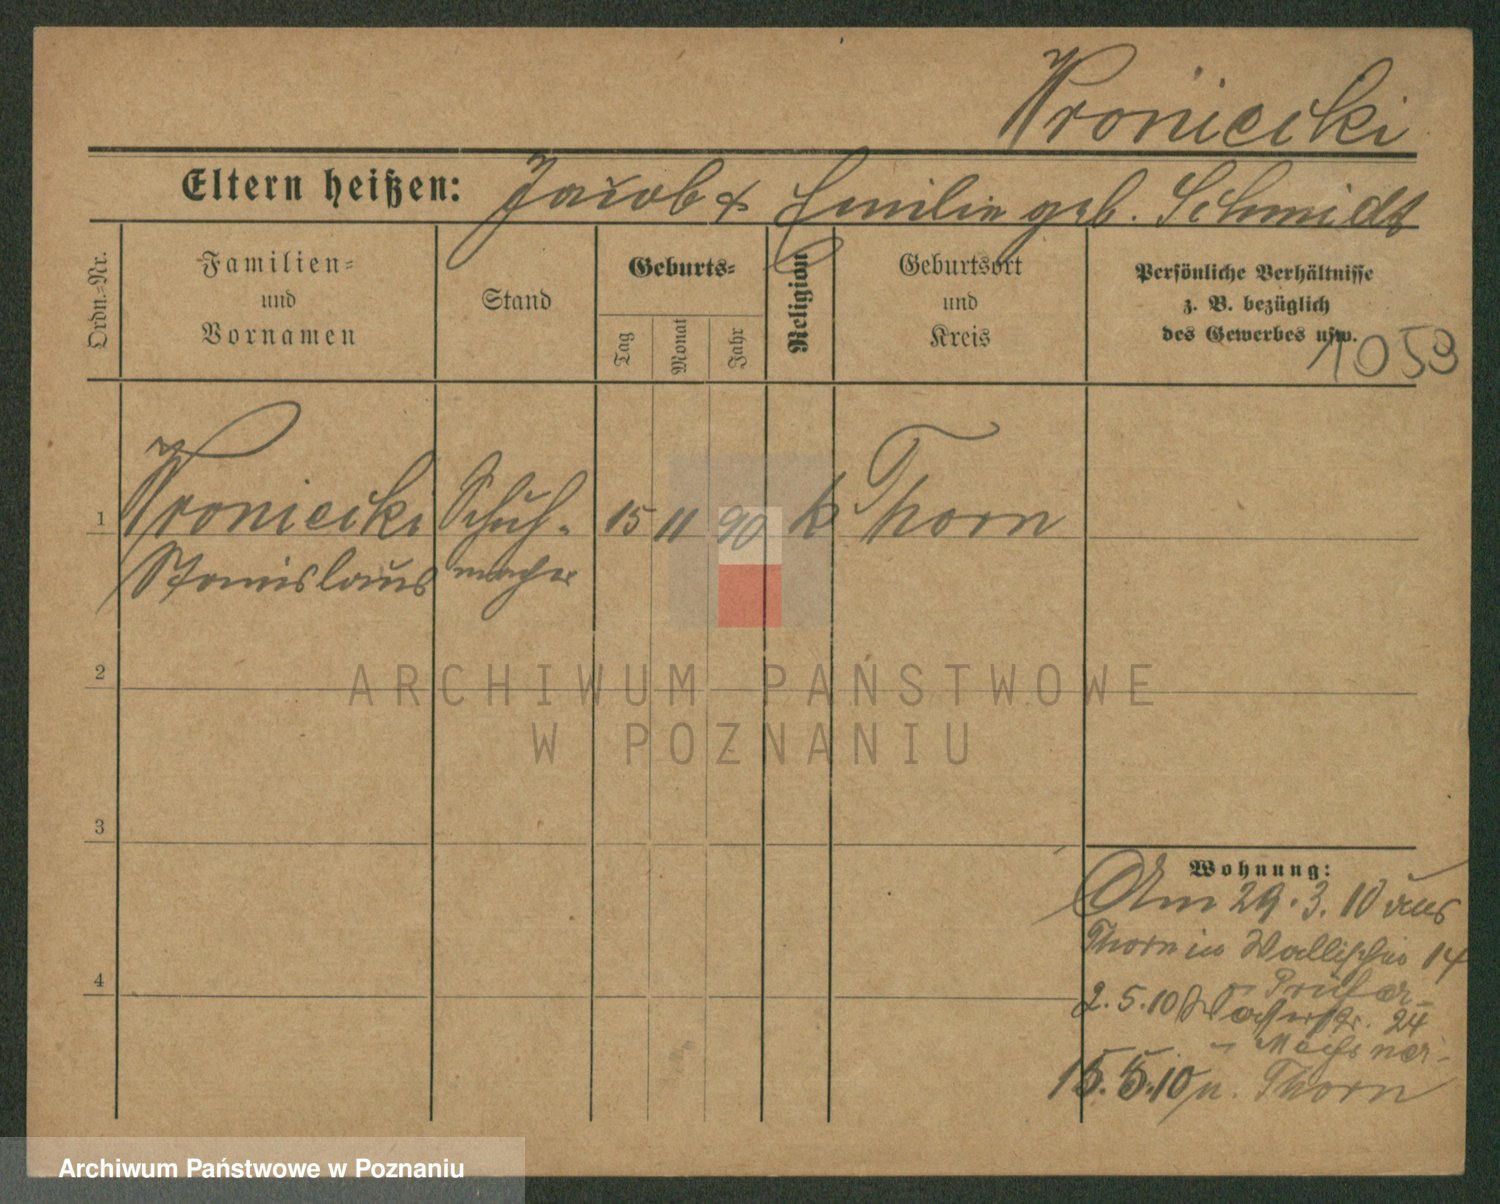 Wroniecki
Eltern heißen: Jacob & Emilie geb. Schmidt
Ordn.-Nr.
Familien-
und
Vornamen
Stand
Geburts-
Tag
Monat
Jahr
Religion
Geburtsort
und
Kreis
Persönliche Verhältnisse
z. B. bezüglich
des Gewerbes usw.
1059
1 Wroniecki Schuh- 15 11 90 k Thorn
Stanislaus macher
2
3
4
Wohnung:
Am 29.3.10 aus
Thorn in Wallischei 14
2.5.10 Wasserstr. 24
15.5.10 n. Thorn
ARCHIWUM PAŃSTWOWE
W POZNANIU
Archiwum Państwowe w Poznaniu